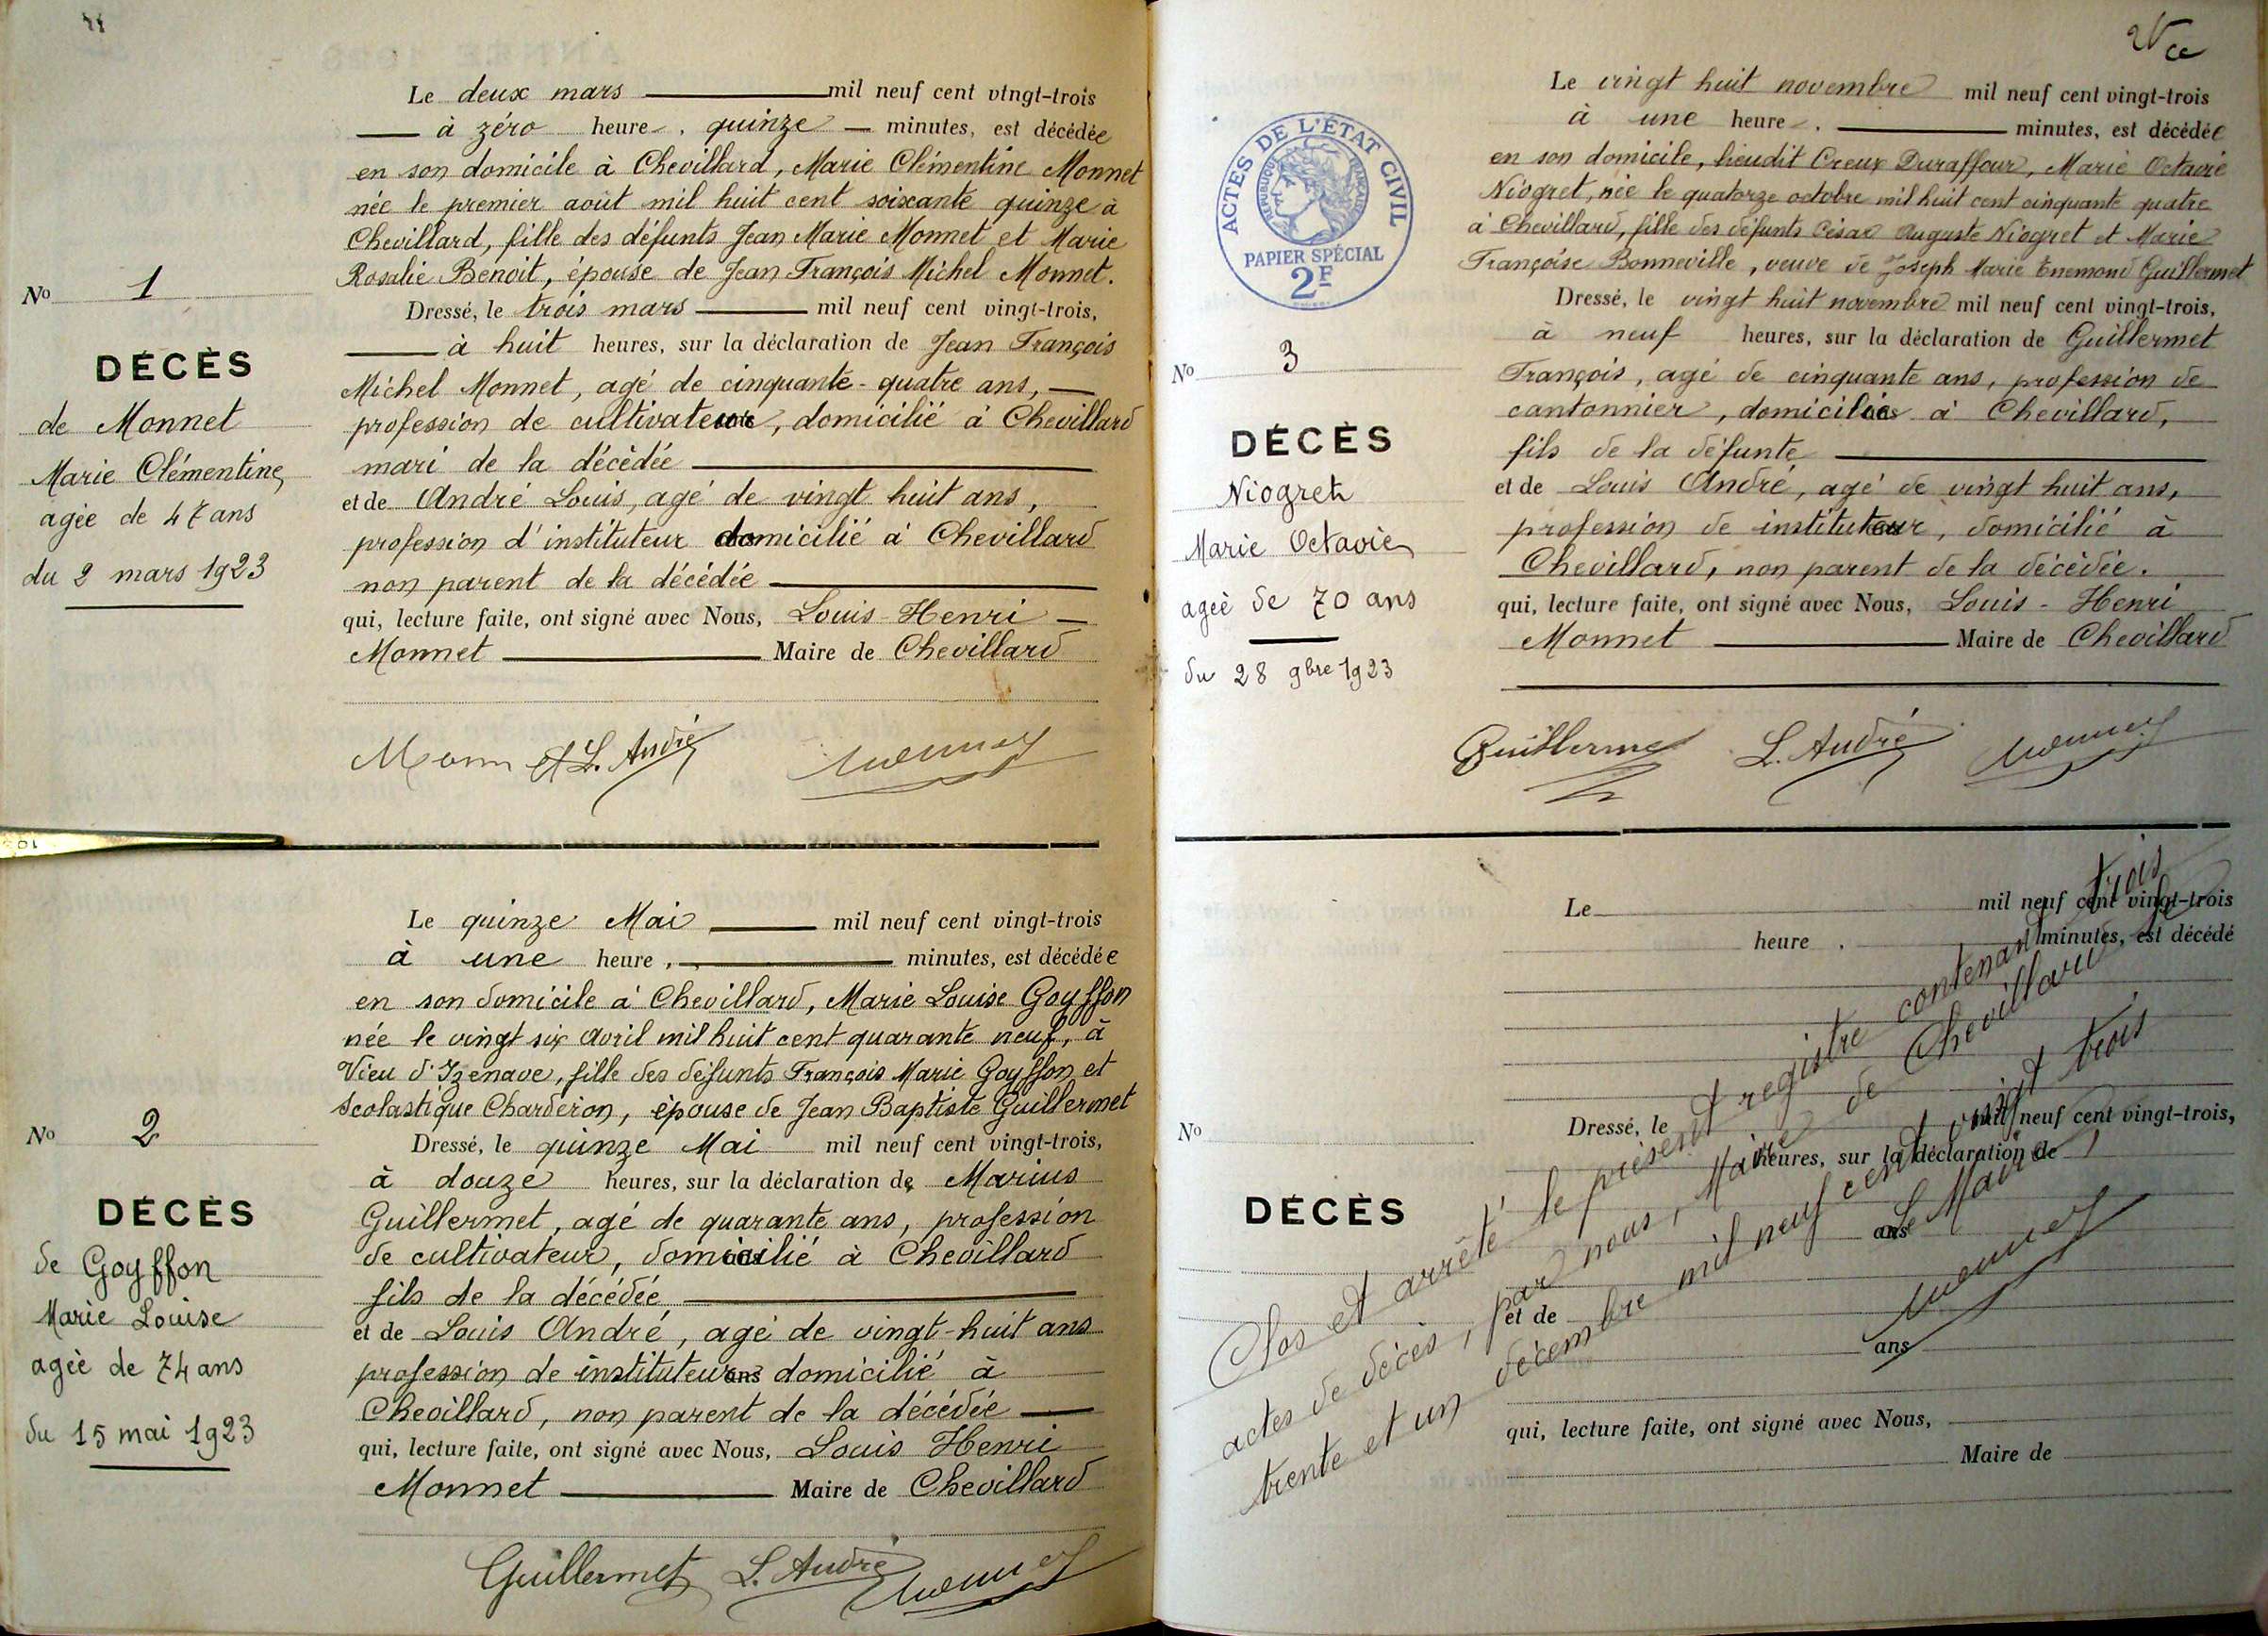 Le deux mars mil neuf cent vingt-trois
à zéro heure, quinze minutes, est décédée
en son domicile à Chevillard, Marie Clémentine Monnet
née le premier août mil huit cent soixante quinze à
Chevillard, fille des défunts Jean Marie Monnet et Marie
Rosalie Benoit, épouse de Jean François Michel Monnet.
No 1
Dressé, le trois mars mil neuf cent vingt-trois,
à huit heures, sur la déclaration de Jean François
DÉCÈS
Michel Monnet, agé de cinquante-quatre ans,
de Monnet
profession de cultivateur, domicilié à Chevillard
Marie Clémentine
mari de la décédée
agée de 47 ans
et de André Louis, agé de vingt huit ans,
profession d'instituteur domicilié à Chevillard
du 2 mars 1923
non parent de la décédée
qui, lecture faite, ont signé avec Nous, Louis-Henri
Monnet Maire de Chevillard
Monnet L. André Monnet
Le quinze Mai mil neuf cent vingt-trois
à une heure, minutes, est décédée
en son domicile à Chevillard, Marie Louise Goyffon
née le vingt six Avril mil huit cent quarante neuf, à
Vieu d'Izenave, fille des défunts François Marie Goyffon et
Scolastique Charderon, épouse de Jean Baptiste Guillermet
No 2
Dressé, le quinze Mai mil neuf cent vingt-trois,
à douze heures, sur la déclaration de Marius
DÉCÈS
Guillermet, agé de quarante ans, profession
de cultivateur, domicilié à Chevillard
de Goyffon
fils de la décédée
Marie Louise
et de Louis André, agé de vingt-huit ans
agée de 74 ans
profession de instituteur domicilié à
Chevillard, non parent de la décédée
du 15 mai 1923
qui, lecture faite, ont signé avec Nous, Louis Henri
Monnet Maire de Chevillard
Guillermet L. André Monnet
Le vingt huit novembre mil neuf cent vingt-trois
à une heure, minutes, est décédée
en son domicile, lieudit Creux Duraffour, Marie Octavie
Niogret, née le quatorze octobre mil huit cent cinquante quatre
à Chevillard, fille des défunts César Auguste Niogret et Marie
Françoise Bonneville, veuve de Joseph Marie Enemond Guillermet
ACTES DE L'ÉTAT CIVIL
RÉPUBLIQUE FRANÇAISE
PAPIER SPÉCIAL
2F
Dressé, le vingt huit novembre mil neuf cent vingt-trois,
à neuf heures, sur la déclaration de Guillermet
No 3
François, agé de cinquante ans, profession de
cantonnier, domicilié à Chevillard,
DÉCÈS
fils de la défunte
Niogret
et de Louis André, agé de vingt huit ans,
Marie Octavie
profession de instituteur, domicilié à
Chevillard, non parent de la décédée.
agée de 70 ans
qui, lecture faite, ont signé avec Nous, Louis-Henri
Monnet Maire de Chevillard
du 28 9bre 1923
Guillermet L. André Monnet
Le mil neuf cent vingt-trois
heure, minutes, est décédé
Dressé, le mil neuf cent vingt-trois,
No
heures, sur la déclaration de
DÉCÈS
ans
et de
ans
qui, lecture faite, ont signé avec Nous,
Maire de
Clos et arrêté le présent registre contenant trois
actes de décès, par nous, Maire de Chevillard le
trente et un décembre mil neuf cent vingt trois
Le Maire,
Monnet